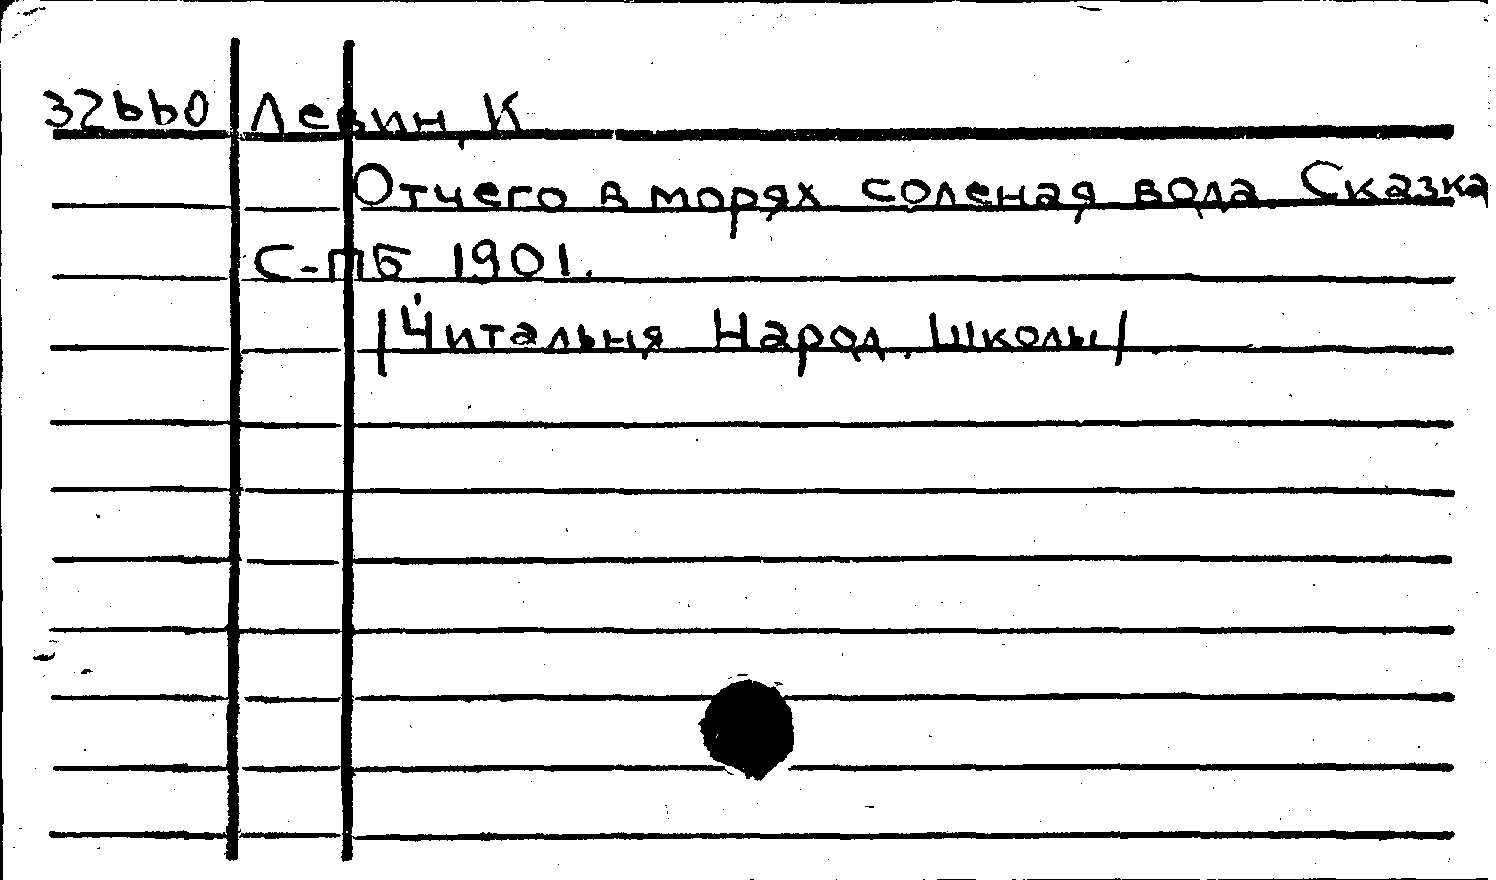 32660 Левин, К
Отчего в морях соленая вода. Сказка
С-ПБ 1901.
/Читальня Народ. Школы/